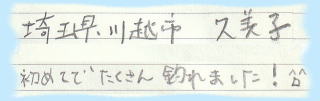 埼玉県川越市 久美子
初めてでたくさん釣れました！^^